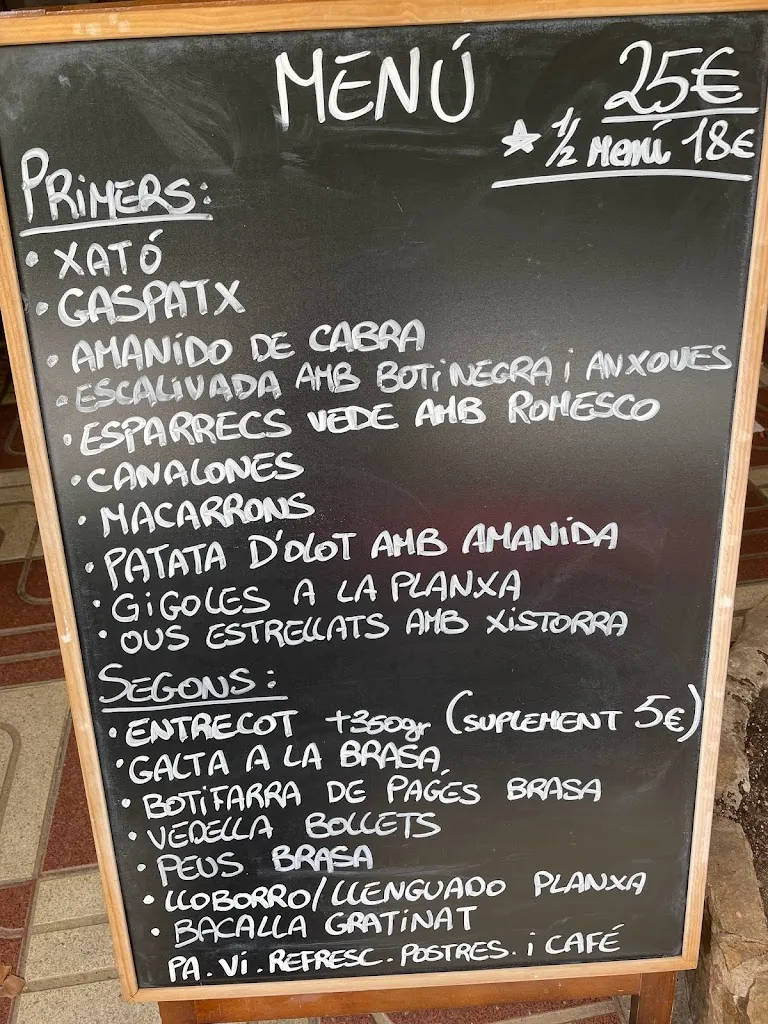 MENÚ 25€
★ 1/2 Mení 18€
PRIMERS:
• XATÓ
• GASPATX
• AMANIDO DE CABRA
• ESCALIVADA AMB BOTINEGRA i ANXOVES
• ESPARRECS VEDE AMB ROMESCO
• CANALONES
• MACARRONS
• PATATA D'OLOT AMB AMANIDA
• GIGOLES A LA PLANXA
• OUS ESTRELLATS AMB XISTORRA
SEGONS:
• ENTRECOT +350gr (SUPLEMENT 5€)
• GALTA A LA BRASA
• BOTIFARRA DE PAGÉS BRASA
• VEDELLA BOLLETS
• PEUS BRASA
• LLOBORRO/LLENGUADO PLANXA
• BACALLA GRATINAT
PA. Vi. REFRESC. POSTRES. i CAFÉ